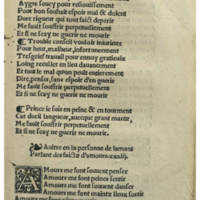 Aygre soucy pour resiouissement
Pour bon souhait espoir mal & dolent
Dure rigueur qui tout faict deperir
Me fault souffrir perpetuellement
Et si ne scay ne guerir ne mourir
¶ Trouble conseil vouloir
Pour heur, malheur, infortunement
Tresgrief travail pour ennuy gratieula
Loing reculer en lieu davancement
Et tout le mal qu on peult entierement
Dire penser, sans espoir d en guerir
Me fault souffrir perpetuellement
Et si ne scay ne guerir ne mourir.
¶ Prince le fois en peine & en tourment
Car dueil langueur, avecque grant mante,
Me fault souffrir perpetuellement
Et si ne scay ne guerir ne mourir.
¶ Aultre en la personne de lamant
Parlant des faictz d amours
AMours me font souvent penser
Amours me font peines sentir
Amours me sont souvent donner
Amours me font maintz lieux sortir